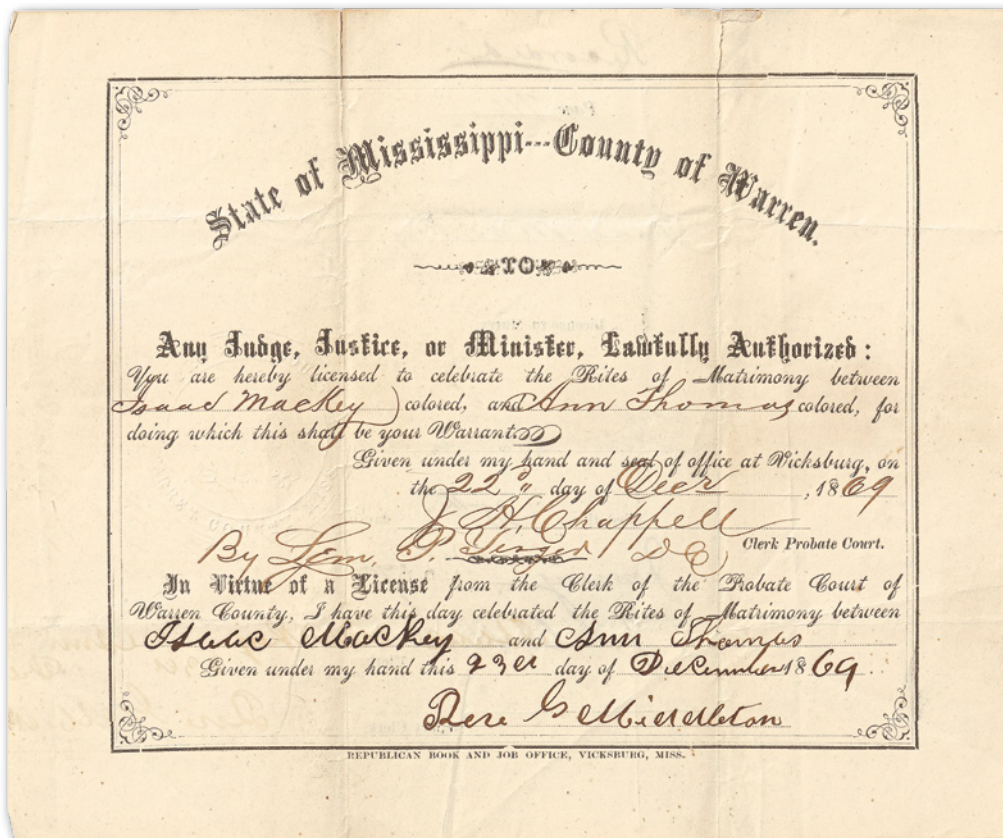 State of Mississippi---County of Warren.
TO
Any Judge, Justice, or Minister, Lawfully Authorized:
You are hereby licensed to celebrate the Rites of Matrimony between
Isaac Mackey colored, and Ann Thomas colored, for
doing which this shall be your Warrant.
Given under my hand and seal of office at Vicksburg, on
the 22" day of Decr, 1869
J H. Chappell
Clerk Probate Court.
By Lem. P. DC
In Virtue of a License from the Clerk of the Probate Court of
Warren County, I have this day celebrated the Rites of Matrimony between
Isaac Mackey and Ann Thomas
Given under my hand this day of December 1869
G Middleton
REPUBLICAN BOOK AND JOB OFFICE, VICKSBURG, MISS.